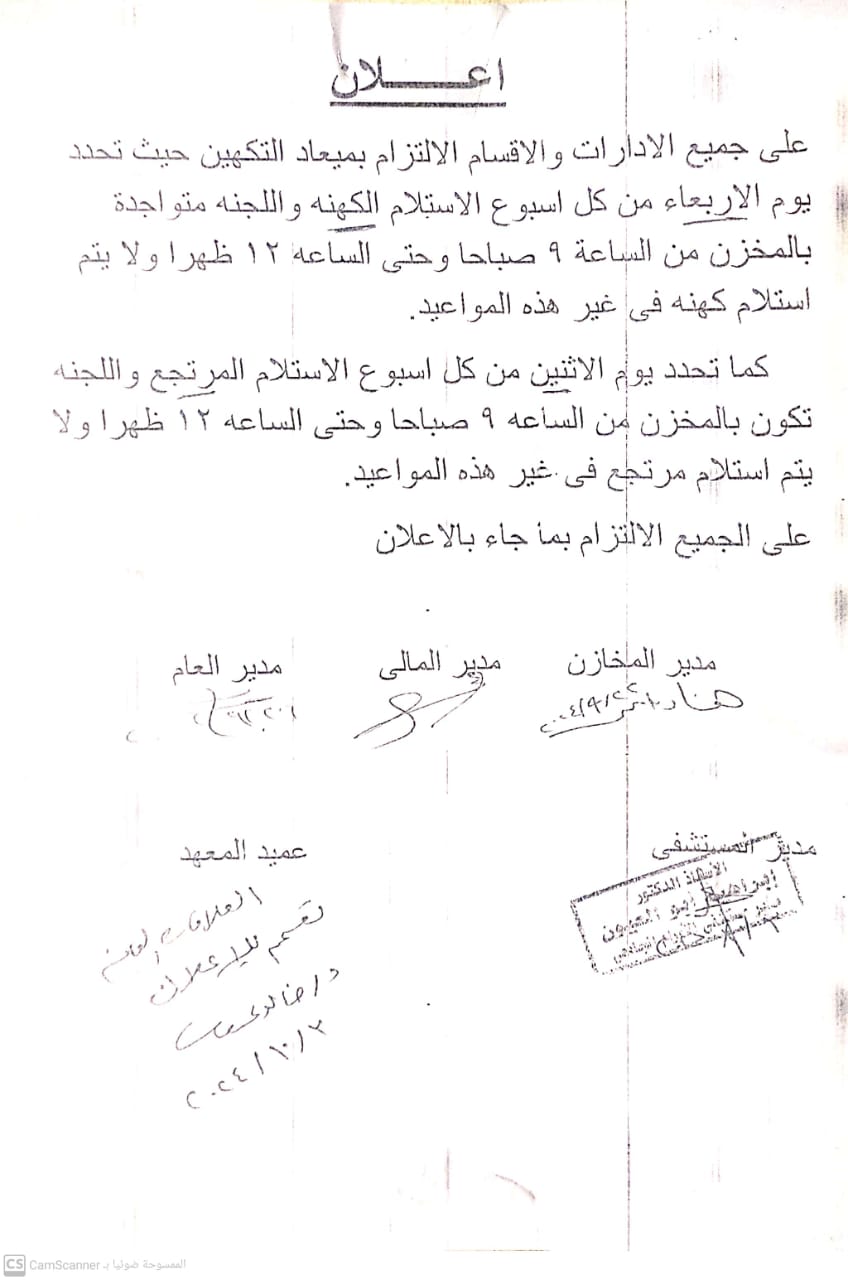 اعــــلان
على جميع الادارات والاقسام الالتزام بميعاد التكهين حيث تحدد
يوم الاربعاء من كل اسبوع الاستلام الكهنه واللجنه متواجدة
بالمخزن من الساعة ٩ صباحا وحتى الساعه ١٢ ظهرا ولا يتم
استلام كهنه فى غير هذه المواعيد.
كما تحدد يوم الاثنين من كل اسبوع الاستلام المرتجع واللجنه
تكون بالمخزن من الساعه ٩ صباحا وحتى الساعه ١٢ ظهرا ولا
يتم استلام مرتجع فى غير هذه المواعيد.
على الجميع الالتزام بما جاء بالاعلان
مدير المخازن مدير المالى مدير العام
مدير المستشفى عميد المعهد
الأستاذ الدكتور
ابراهيم ابو العيون
العلاقات العامة
للإعلان
٢٠٢٤/١٠/٢
CS CamScanner الممسوحة ضوئيا بـ